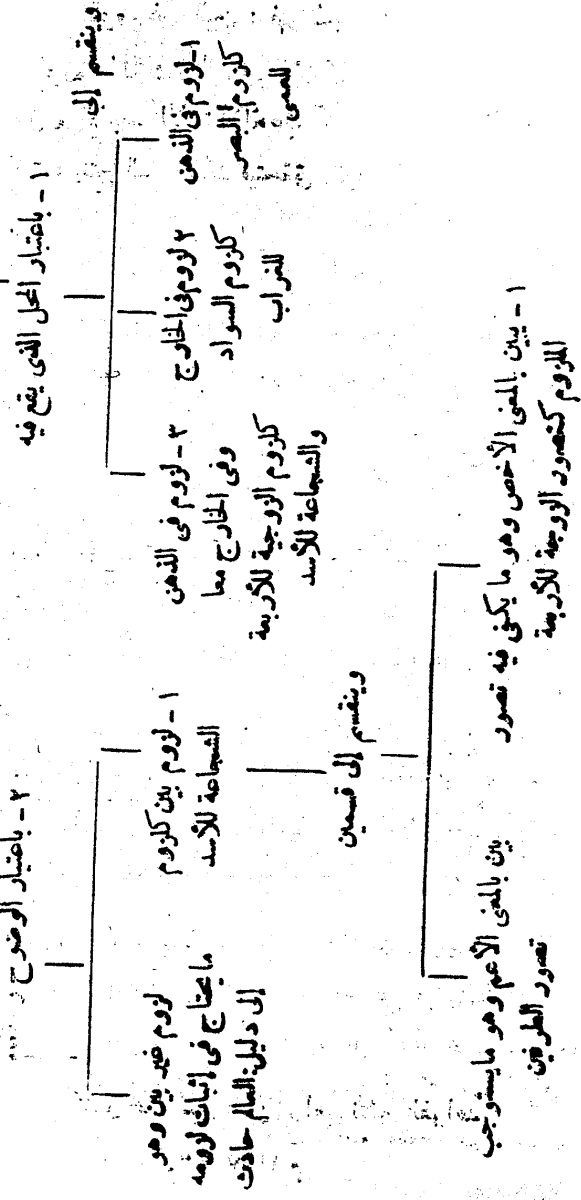 وينقسم إلى
١ - باعتبار المحل الذى يقع فيه
١ - لزوم فى الذهن
كلزوم البصر
للعمى
٢ لزوم فى الخارج
كلزوم السواد
للغراب
٣ - لزوم فى الذهن
وفى الخارج معا
كلزوم الزوجية للأربعة
والشجاعة للأسد
٢ - باعتبار الوضوح
١ - لزوم بين كلزوم
الشجاعة للأسد
لزوم غير بين وهو
ما يحتاج فى إثبات لزومه
إلى دليل: العالم حادث
وينقسم إلى قسمين
١ - بين بالمعنى الأخص وهو ما يكفى فيه تصور
الملزوم كتصور الزوجة للأربعة
بين بالمعنى الأعم وهو ما يستوجب
تصور الطرفين